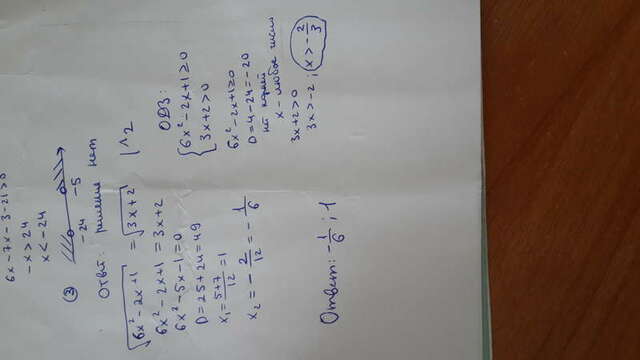 6x - 7x - 3 - 21 > 0
-x > 24
x < -24
③
-24 -5
Ответ: решения нет
√6x² - 2x + 1 = √3x + 2 |^2
6x² - 2x + 1 = 3x + 2
6x² - 5x - 1 = 0
D = 25 + 24 = 49
x₁ = 5+7/12 = 1
x₂ = -2/12 = -1/6
Ответ: -1/6 ; 1
ОДЗ:
{6x² - 2x + 1 ≥ 0
3x + 2 > 0
6x² - 2x + 1 ≥ 0
D = 4 - 24 = -20
нет корней
x - любое число
3x + 2 > 0
3x > -2 ; x > -2/3